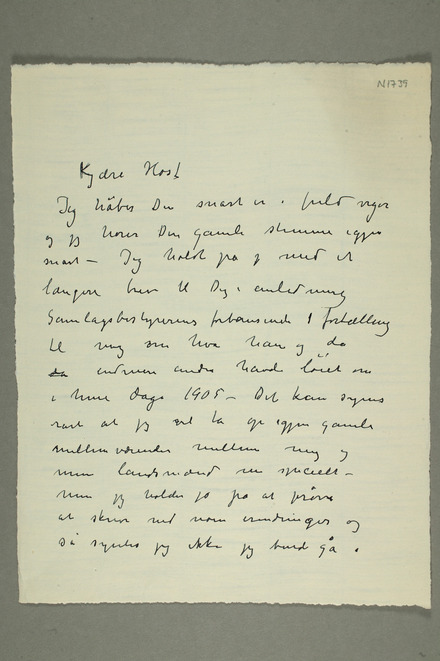 N1739
Kjære Høst
Jeg håber Du snart er i fuld vigør
og jeg hører Din gamle stemme igjen
snart – Jeg holdt på med et
længere brev til Dig i anledning
Samlagsbestyrerens forbausende fortælling
til mig om hva han og da
endnu andre havde løiet om
i hine dage 1905 – Det kan synes
rart at jeg vil ta op igjen gamle
mellemværender mellem mig og
mine landsmænd spesielt –
men jeg holder jo på at prøve
at skrive ned nogen erindringer og
så syntes jeg ikke jeg burde gå